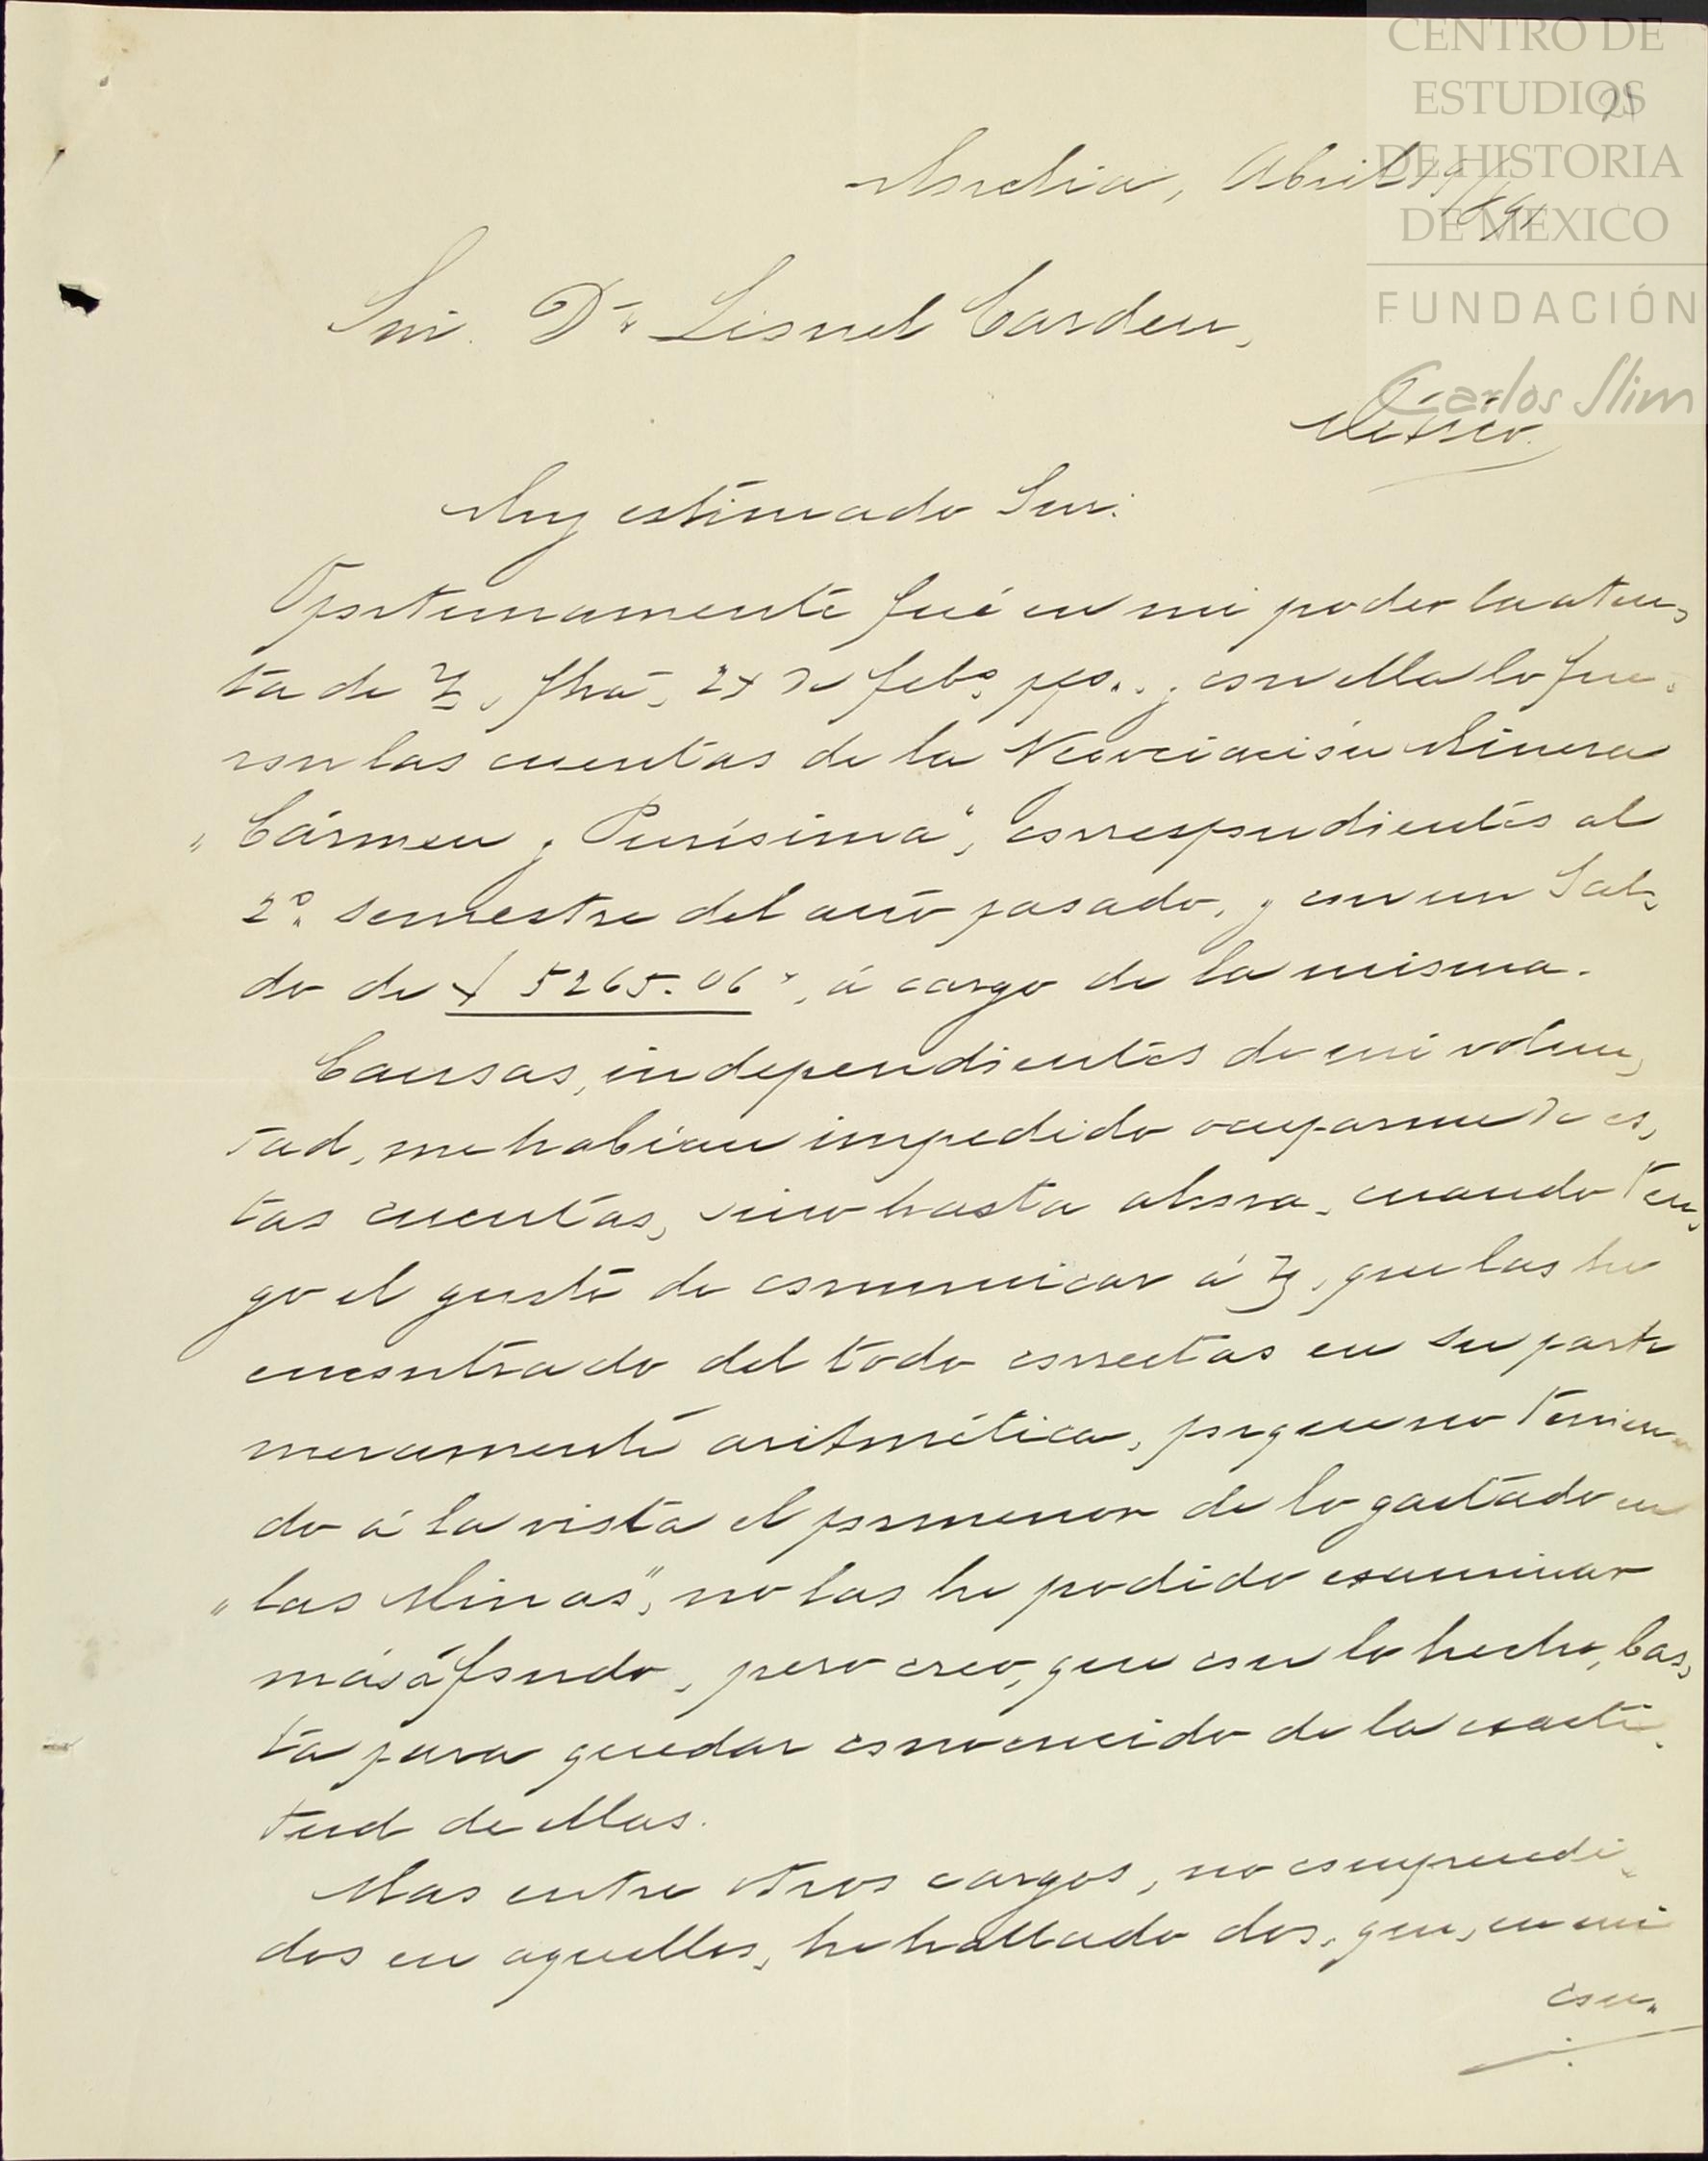 CENTRO DE
ESTUDIOS
DE HISTORIA
DE MEXICO
FUNDACIÓN
Carlos Slim
21
Morelia, Abril 19/891
Snr. Dn. Lionel Carden,
México.
Muy estimado Snr:
Oportunamente fué en mi poder la aten-
ta de V., fha, 27 de febo. ppo., y con ella lo fue-
ron las cuentas de la Negociación Minera
"Cármen y Purísima", correspondientes al
2o. semestre del año pasado, y con un Sal-
do de $ 5265.06, á cargo de la misma.
Causas, independientes de mi volun-
tad, me habían impedido ocuparme de es-
tas cuentas, sino hasta ahora, cuando ten-
go el gusto de comunicar á V., que las he
encontrado del todo correctas en su parte
meramente aritmética, porque no tenien-
do á la vista el pormenor de lo gastado en
"las Minas", no las he podido examinar
más á fondo, pero creo, que con lo hecho, bas-
ta para quedar convencido de la exacti-
tud de ellas.
Mas entre otros cargos, no comprendi-
dos en aquellos, he hallado dos, que, en mi
con-